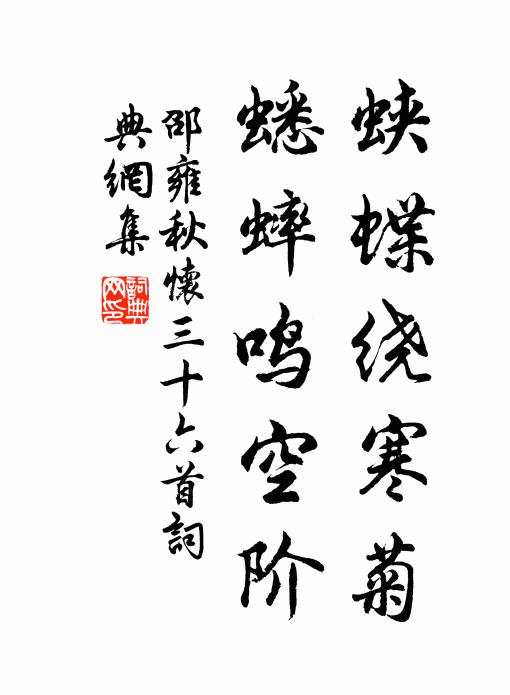 蛱蝶绕寒菊
蟋蟀鸣空阶
邵雍秋懷三十六首詞
典網集
詞典
网印